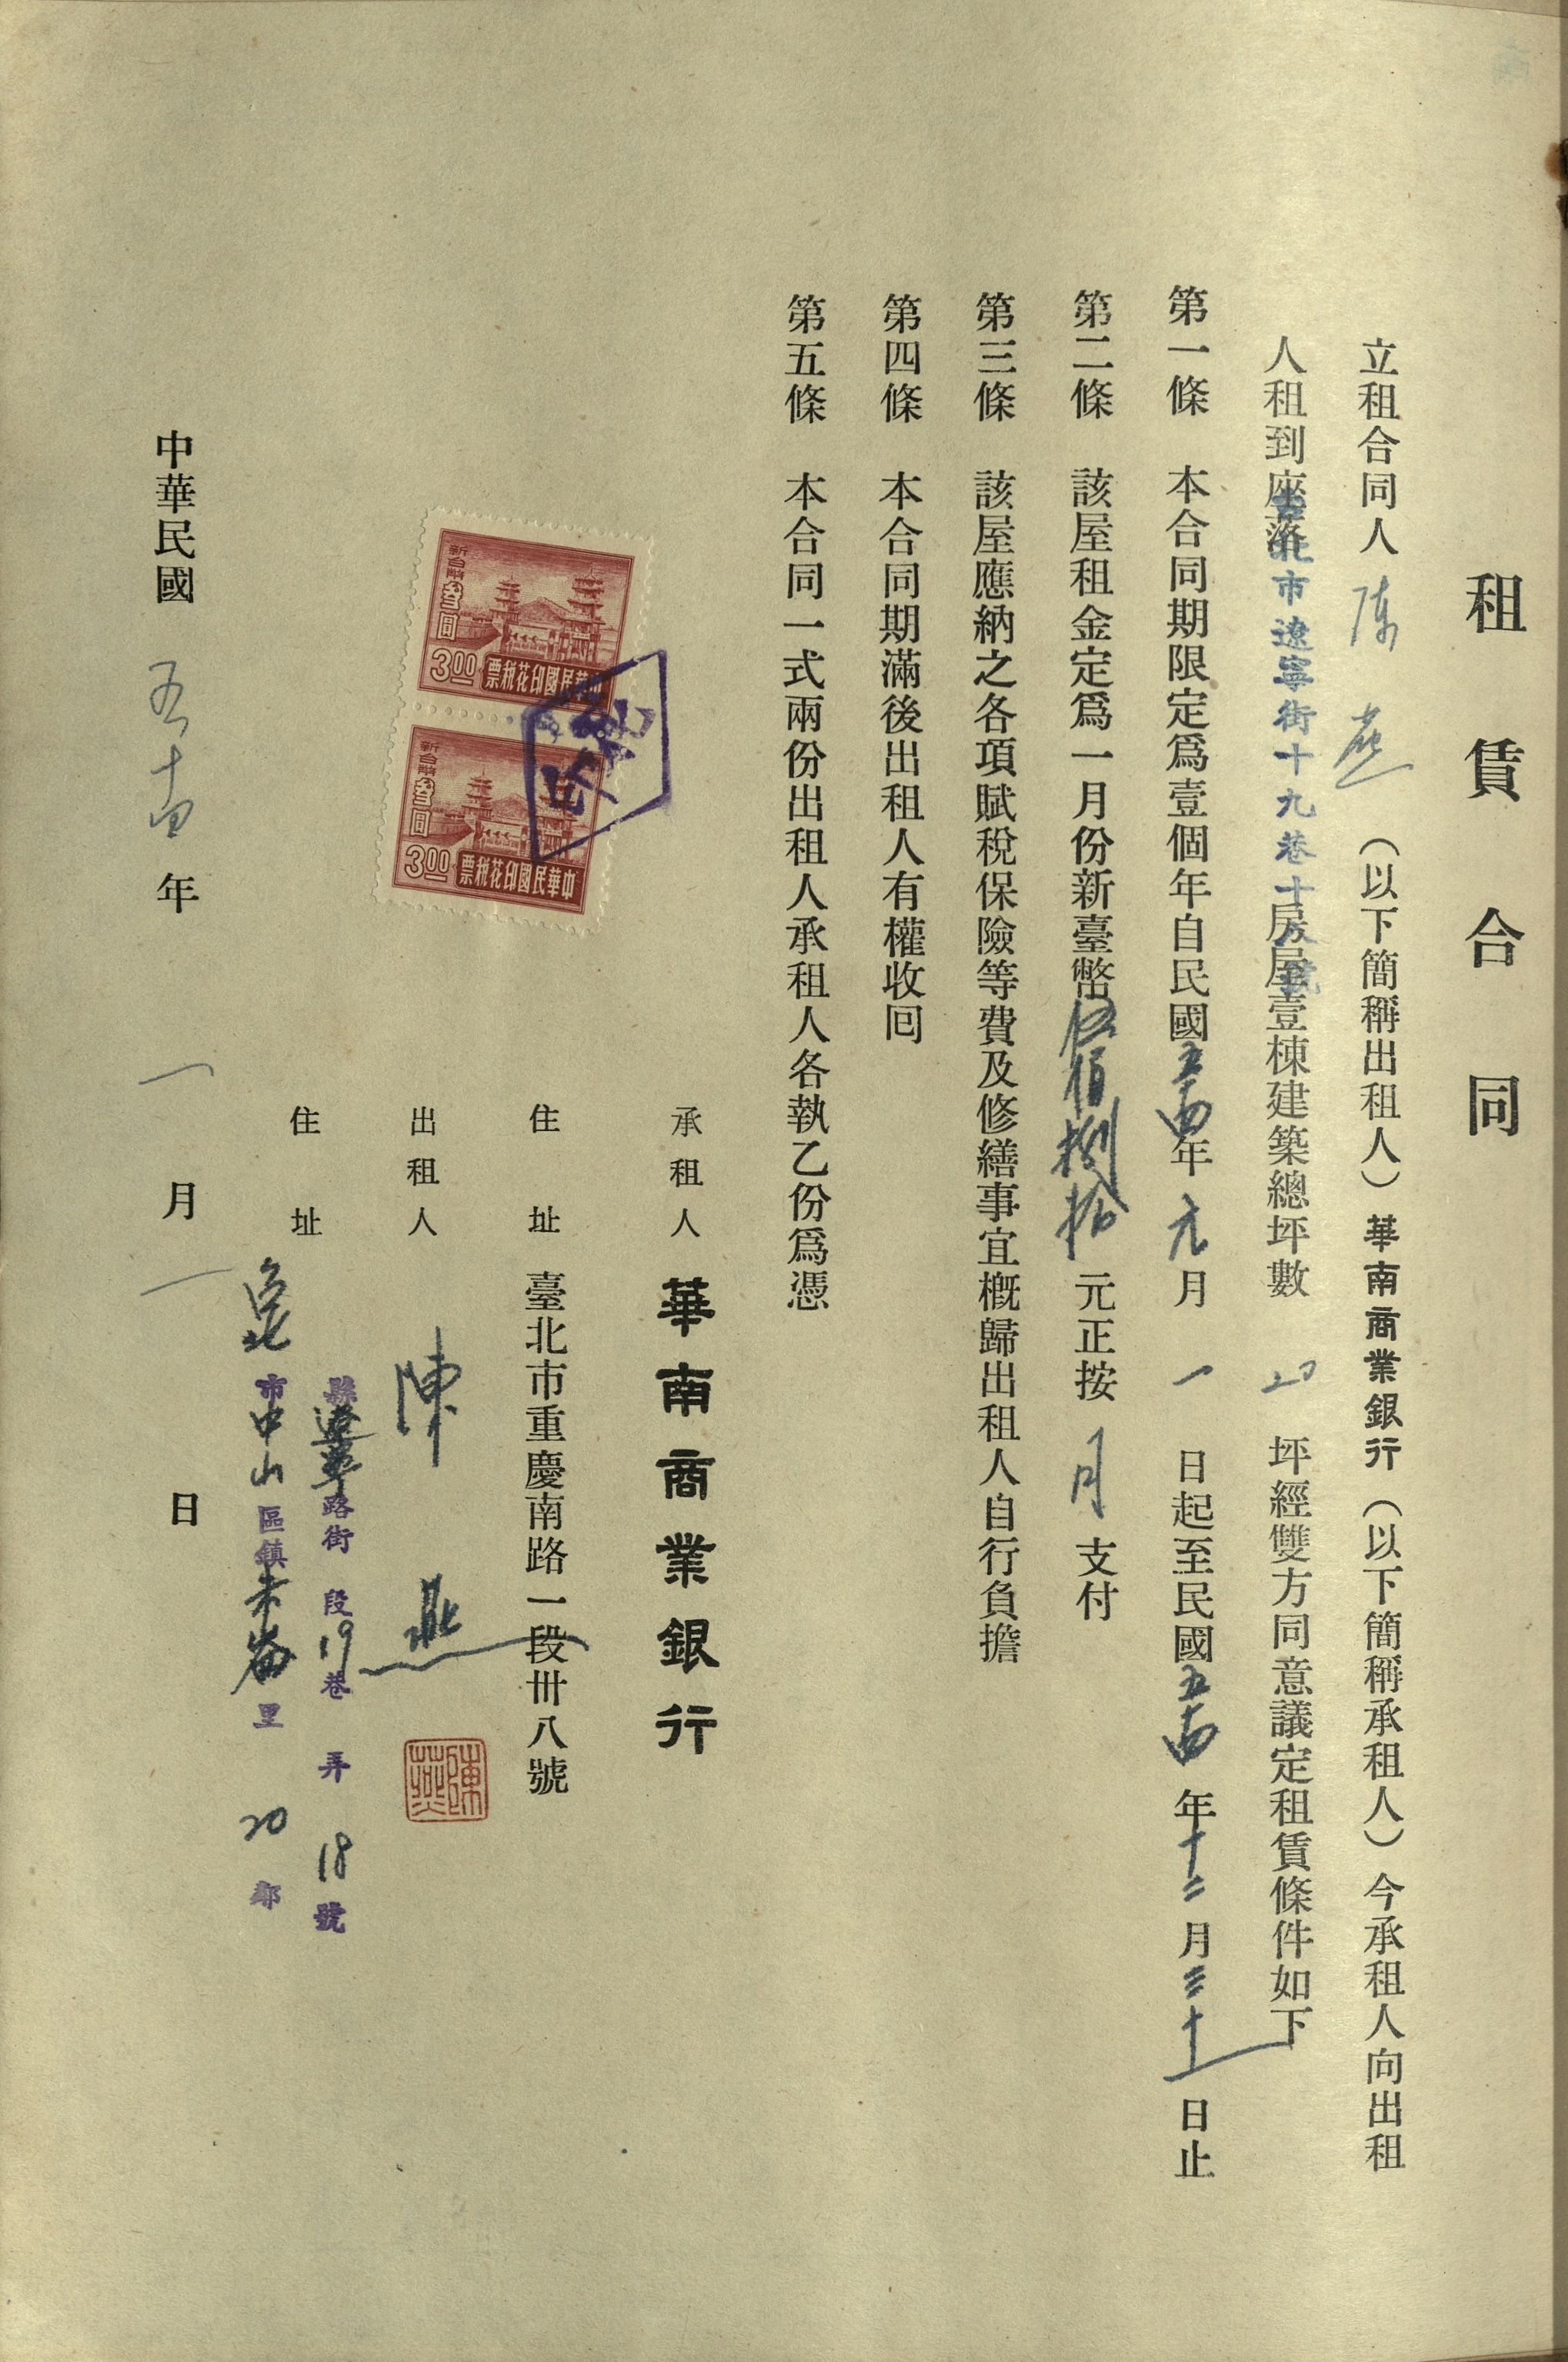 租賃合同
立租合同人陳燕(以下簡稱出租人)華南商業銀行(以下簡稱承租人)今承租人向出租
人租到座落臺北市遼寧街十九巷十八號房屋壹棟建築總坪數20坪經雙方同意議定租賃條件如下
第一條 本合同期限定為壹個年自民國五十四年元月一日起至民國五十四年十二月三十一日止
第二條 該屋租金定為一月份新臺幣伍佰捌拾元正按月支付
第三條 該屋應納之各項賦稅保險等費及修繕事宜概歸出租人自行負擔
第四條 本合同期滿後出租人有權收回
第五條 本合同一式兩份出租人承租人各執乙份為憑
承租人 華南商業銀行
住址 臺北市重慶南路一段卅八號
新台幣叁圓
3.00
中華民國印花稅票
新台幣叁圓
3.00
中華民國印花稅票
出租人 陳燕
陳燕
住址
縣遼寧路街 段19巷 弄18號
台北市中山區鎮朱崙里20鄰
中華民國五十四年一月一日